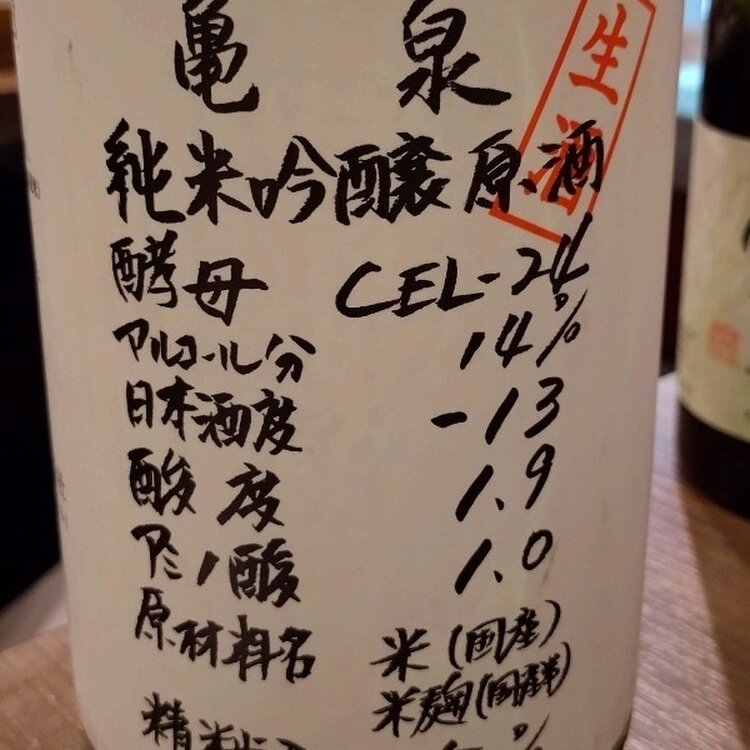 亀泉
生酒
純米吟醸原酒
酵母 CEL-24
アルコール分 14%
日本酒度 -13
酸度 1.9
アミノ酸 1.0
原材料名 米(国産)
米麹(国産米)
精米